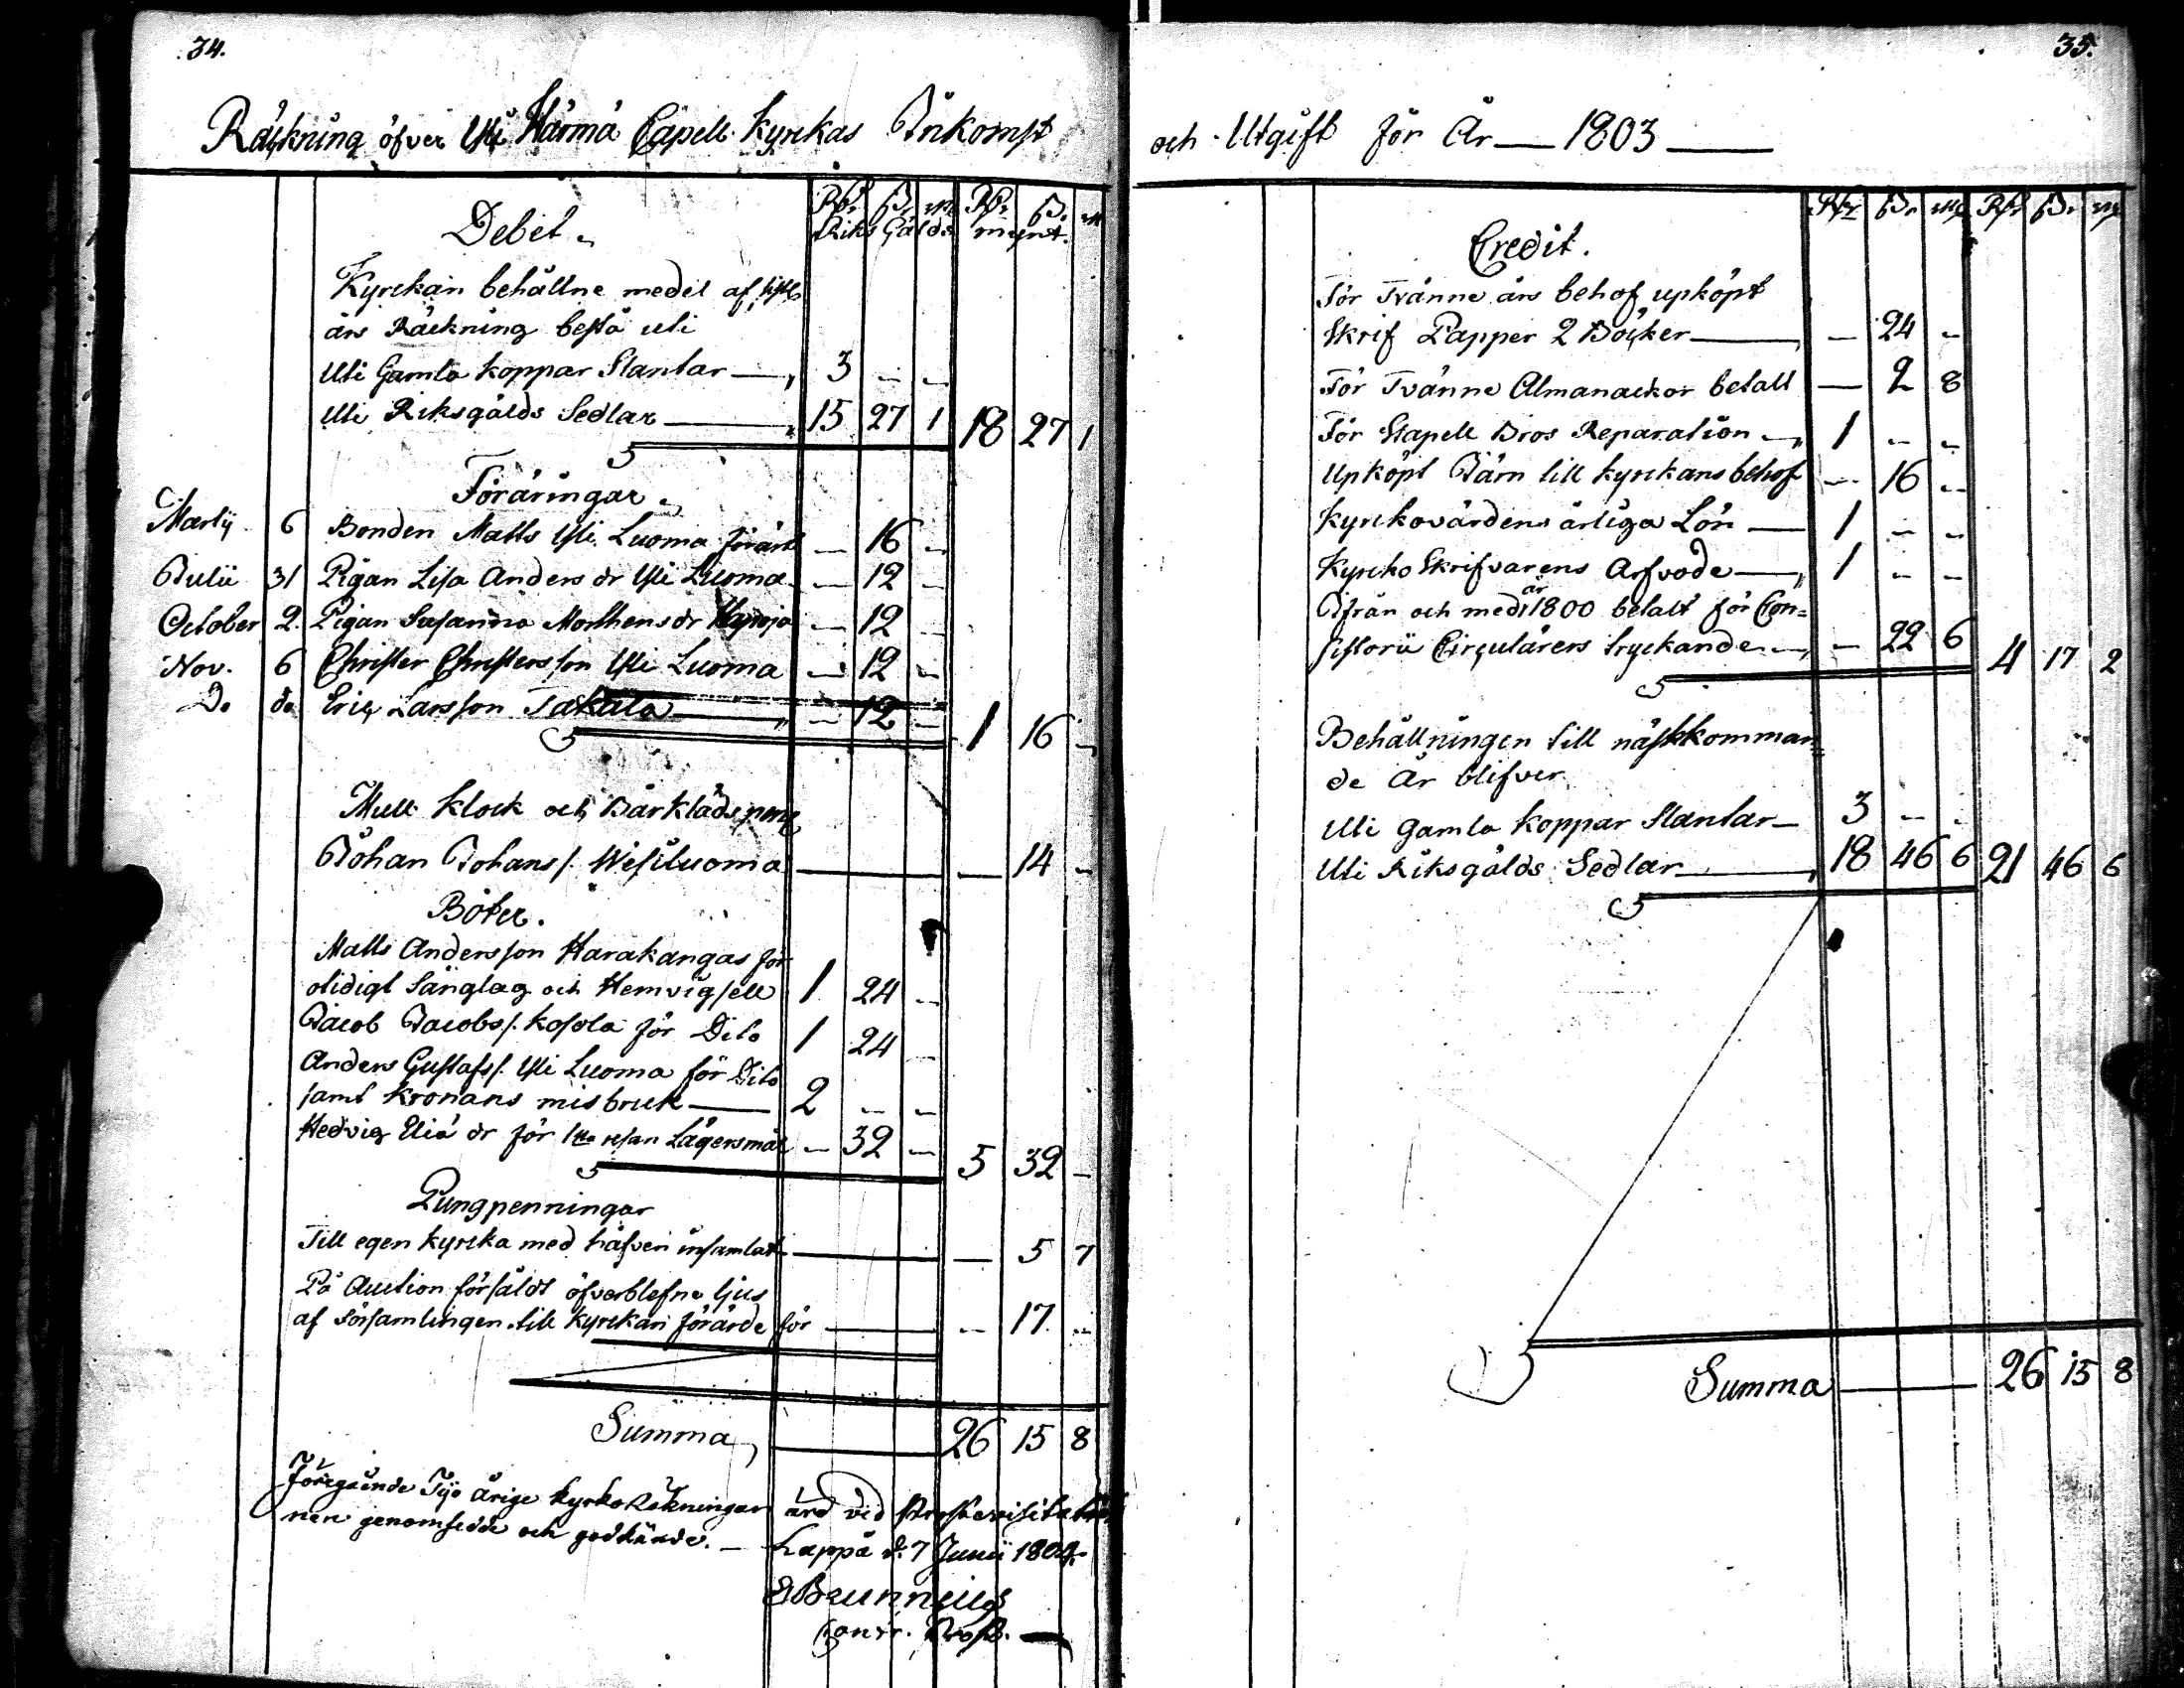 34.
Räkning öfver Ylij Härmä Capell Kyrckas Inkomst
Rdr ß. rst. Rdr ß. rst
Debet.
Riks Gälds mynt.
Kyrckan behållne medel af sistl.
års Räckning bestå uti
Uti Gamla koppar Slantar — 3 - -
Uti Riksgälds Sedlar — 15 27 1 18 27 1
Föräringar.
Martij 6 Bonden Matts Yli Luoma förärt — 16 -
Julii 31 Pigan Lisa Anders dr Yli Luoma — 12 -
October 2. Pigan Susanna Matthens dr — 12 -
Nov. 6 Christer Christersson Yli Luoma — 12 -
Do do Eric Larsson Takala — 12 - 1 16 -
Mull Klock och Bårklädspeng
Johan Johanss. Wisiluoma — 14 -
Böter.
Matts Andersson Harakangas för
otidigt Sänglag och Hemvigsell 1 24 -
Jacob Jacobss. Kosola för Dito 1 24 -
Anders Gustafss. Yli Luoma för Dito
samt Kronans misbruk — 2 - -
Hedvig Eliæ dr för 1sta resan Lägersmål — 32 — 5 32 -
Pungpenningar
Till egen kyrcka med håfven insamlat — 5 7
På Auction försåldt öfverblefne ljus
af Församlingen till kyrckan förärde för — 17 -
Summa — 26 15 8
Föregående Tijo årige Kyrko Räkningar äro vid Prostevisitation
nere genomsedde och godkände. — Lappå d. 7 Junii 1804.
EBrunnius
Contr. Prost.
35.
och Utgift för År — 1803 —
Rdr ß. rst Rdr ß. rst
Credit.
För Tvänne års behof upköpt
Skrif Papper 2 Böcker — — 24 -
För Tvänne Almanackor betalt — 2 8
För Stapell Bros Reparation — 1 - -
Upköpt Järn till kyrckans behof — 16 -
Kyrckovärdens årliga Lön — 1 - -
Kyrcko Skrifvarens Arfvode — 1 - -
Ifrån och med år 1800 betalt för Con=
sistorii Circulärers tryckande — — 22 6 4 17 2
Behållningen till nästkomman=
de År blifver
Uti Gamla koppar Slantar — 3 - -
Uti Riksgälds Sedlar — 18 46 6 21 46 6
Summa — 26 15 8